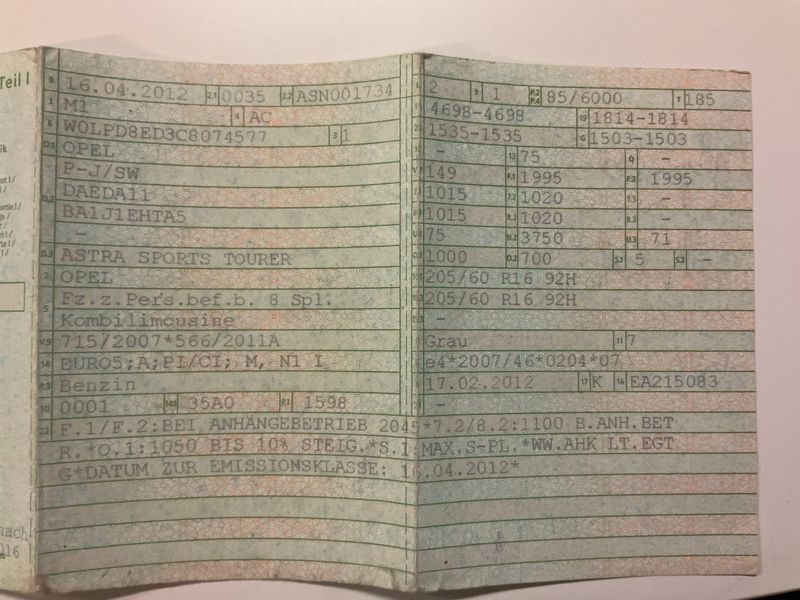 Teil I
B 16.04.2012 2.1 0035 2.2 ASN001734
J M1 4 AC
E W0LPD8ED3C8074577 3 1
D.1 OPEL
P-J/SW
D.2 DAEDA11
BA1J1EHTA5
-
D.3 ASTRA SPORTS TOURER
2 OPEL
5 Fz.z.Pers.bef.b. 8 Spl.
Kombilimousine
V.9 715/2007*566/2011A
14 EURO5;A;PI/CI; M, N1 I
P.3 Benzin
10 0001 14.1 35A0 P.1 1598
L 2 9 1 P.2 P.4 85/6000 T 185
18 4698-4698 19 1814-1814
20 1535-1535 G 1503-1503
- 13 75 Q -
V.7 149 F.1 1995 F.2 1995
7.1 1015 7.2 1020 7.3 -
8.1 1015 8.2 1020 8.3 -
U.1 75 U.2 3750 U.3 71
O.1 1000 O.2 700 S.1 5 S.2 -
15.1 205/60 R16 92H
15.2 205/60 R16 92H
15.3 -
Grau 11 7
e4*2007/46*0204*07
17.02.2012 17 K 16 EA215083
-
22 F.1/F.2:BEI ANHÄNGEBETRIEB 2045*7.2/8.2:1100 B.ANH.BET
R.*O.1:1050 BIS 10% STEIG.*S.1:MAX.S-PL.*WW.AHK LT.EGT
G*DATUM ZUR EMISSIONSKLASSE: 16.04.2012*